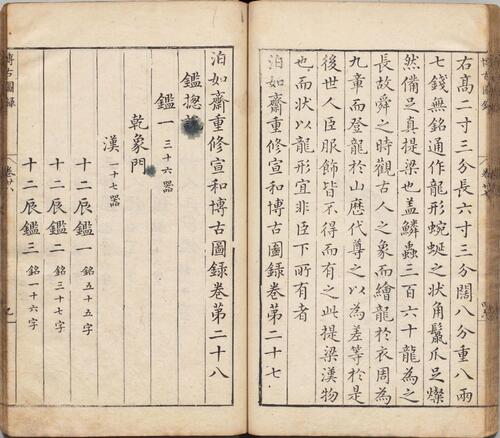 右高二寸三分長六寸三分闊八分重八兩
七錢無銘通作龍形蜿蜒之狀角鬣爪足燦
然備足真提梁也蓋鱗蟲三百六十龍為之
長故舜之時觀古人之象而繪龍於衣周為
九章而登龍於山歷代尊之以為差等於是
後世人臣服飾皆不得而有之此提梁漢物
也而狀以龍形宜非臣下所有者
泊如齋重修宣和博古圖錄卷第二十七
泊如齋重修宣和博古圖錄卷第二十八
鑑惣
鑑一 三十六器
乾象門
漢 一十七器
十二辰鑑一 銘五十五字
十二辰鑑二 銘三十七字
十二辰鑑三 銘一十六字
博古圖錄